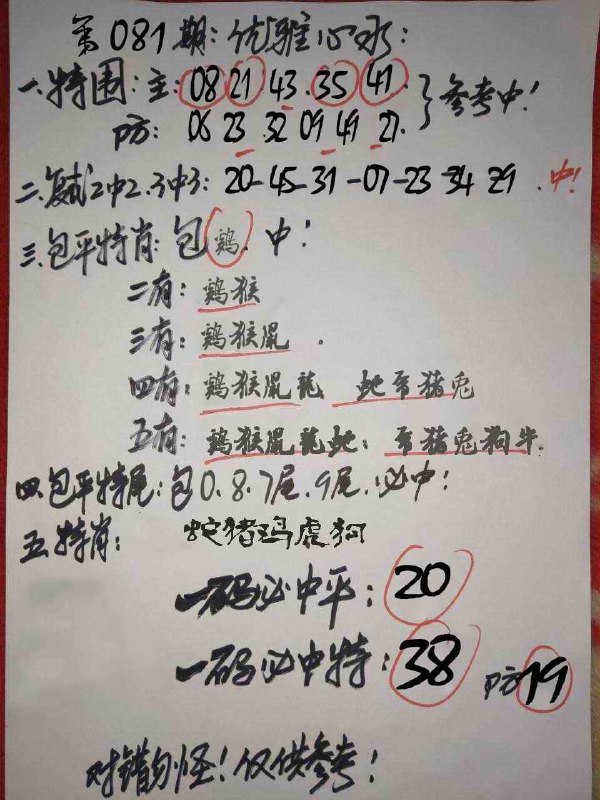 第081期:优雅心水:
一.特围:主:08 21.43.35 41.
防:06 23 32 09 49 27.
}参考中!
二.复试2中2.3中3:20-45-31-07-23 34 29.中!
三.包平特肖:包鷄.中!
二有:鷄猴
三有:鷄猴鼠.
四有:鷄猴鼠龍 蛇 猪兔
五有:鷄猴鼠龍蛇: 猪兔狗牛.
四.包平特尾:包0.8.7尾.9尾.必中!
五.特肖:蛇猪鸡虎狗
一码必中平:20
一码必中特:38 防19
对错勿怪!仅供参考!